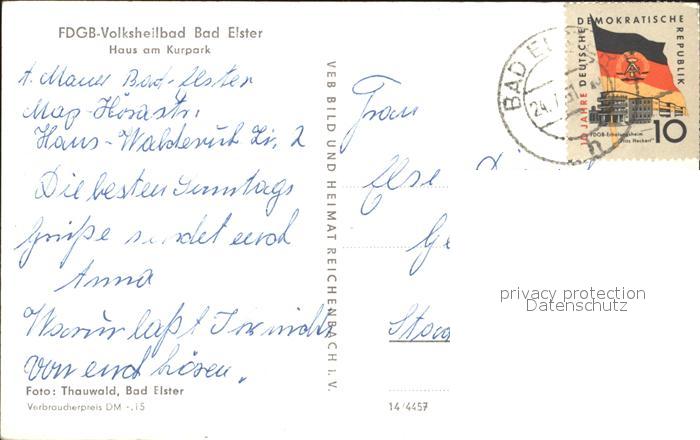 FDGB-Volksheilbad Bad Elster
Haus am Kurpark
A. Mauer Bad-Elster
Haus - Zi. 2
Die besten Sonntags
Grüße sendet euch
Anna
Warum laßt Ihr nichts
von euch hören.
Foto: Thauwald, Bad Elster
Verbraucherpreis DM -.15
VEB BILD UND HEIMAT REICHENBACH i. V.
Frau
Else
14/4457
BAD EL
24.
10 JAHRE DEUTSCHE DEMOKRATISCHE REPUBLIK
FDGB-Erholungsheim
"Fritz Heckert"
10
privacy protection
Datenschutz